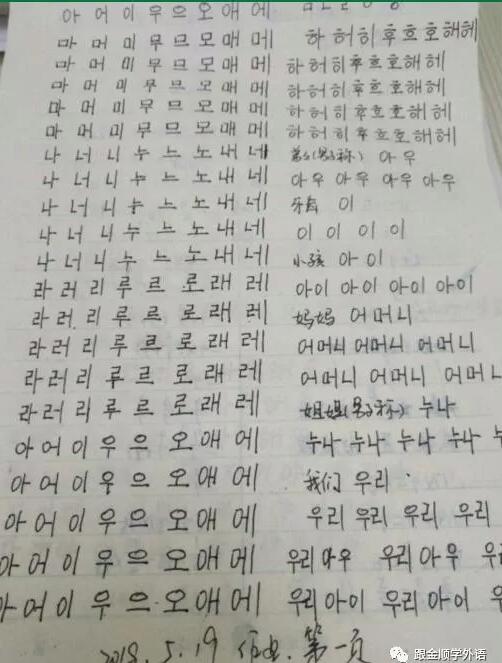 아 어 이 우 으 오 애 에
마 머 미 무 므 모 매 메 하 허 히 후 흐 호 해 헤
마 머 미 무 므 모 매 메 하 허 히 후 흐 호 해 헤
마 머 미 무 므 모 매 메 하 허 히 후 흐 호 해 헤
마 머 미 무 므 모 매 메 하 허 히 후 흐 호 해 헤
마 머 미 무 므 모 매 메 하 허 히 후 흐 호 해 헤
나 너 니 누 느 노 내 네 弟弟(男子称) 아우
나 너 니 누 느 노 내 네 아우 아우 아우 아우
나 너 니 누 느 노 내 네 牙齿 이
나 너 니 누 느 노 내 네 이 이 이 이
나 너 니 누 느 노 내 네 小孩 아이
라 러 리 루 르 로 래 레 아이 아이 아이 아이
라 러 리 루 르 로 래 레 妈妈 어머니
라 러 리 루 르 로 래 레 어머니 어머니 어머니
라 러 리 루 르 로 래 레 어머니 어머니 어머니
라 러 리 루 르 로 래 레 姐姐(男子称) 누나
아 어 이 우 으 오 애 에 누나 누나 누나 누나 누
아 어 이 우 으 오 애 에 我们 우리
아 어 이 우 으 오 애 에 우리 우리 우리 우리
아 어 이 우 으 오 애 에 우리 아우 우리 아우 우리
아 어 이 우 으 오 애 에 우리 아이 우리 아이 우리
2018. 5. 19 作业. 第一页
跟金顺学外语